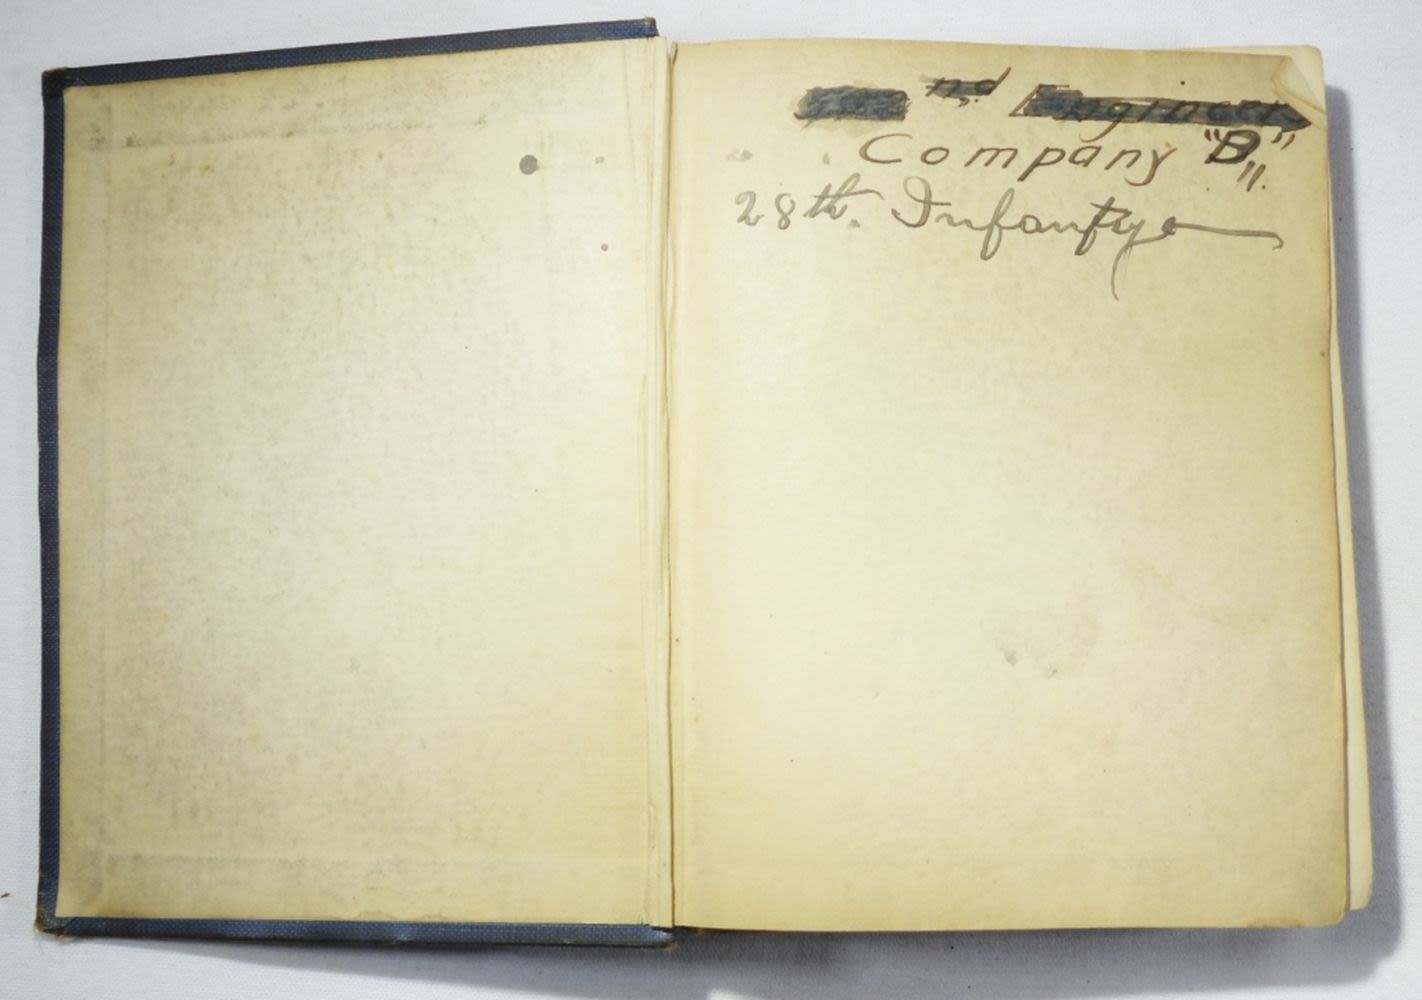 nd Engineers
Company "D"
28th. Infantry